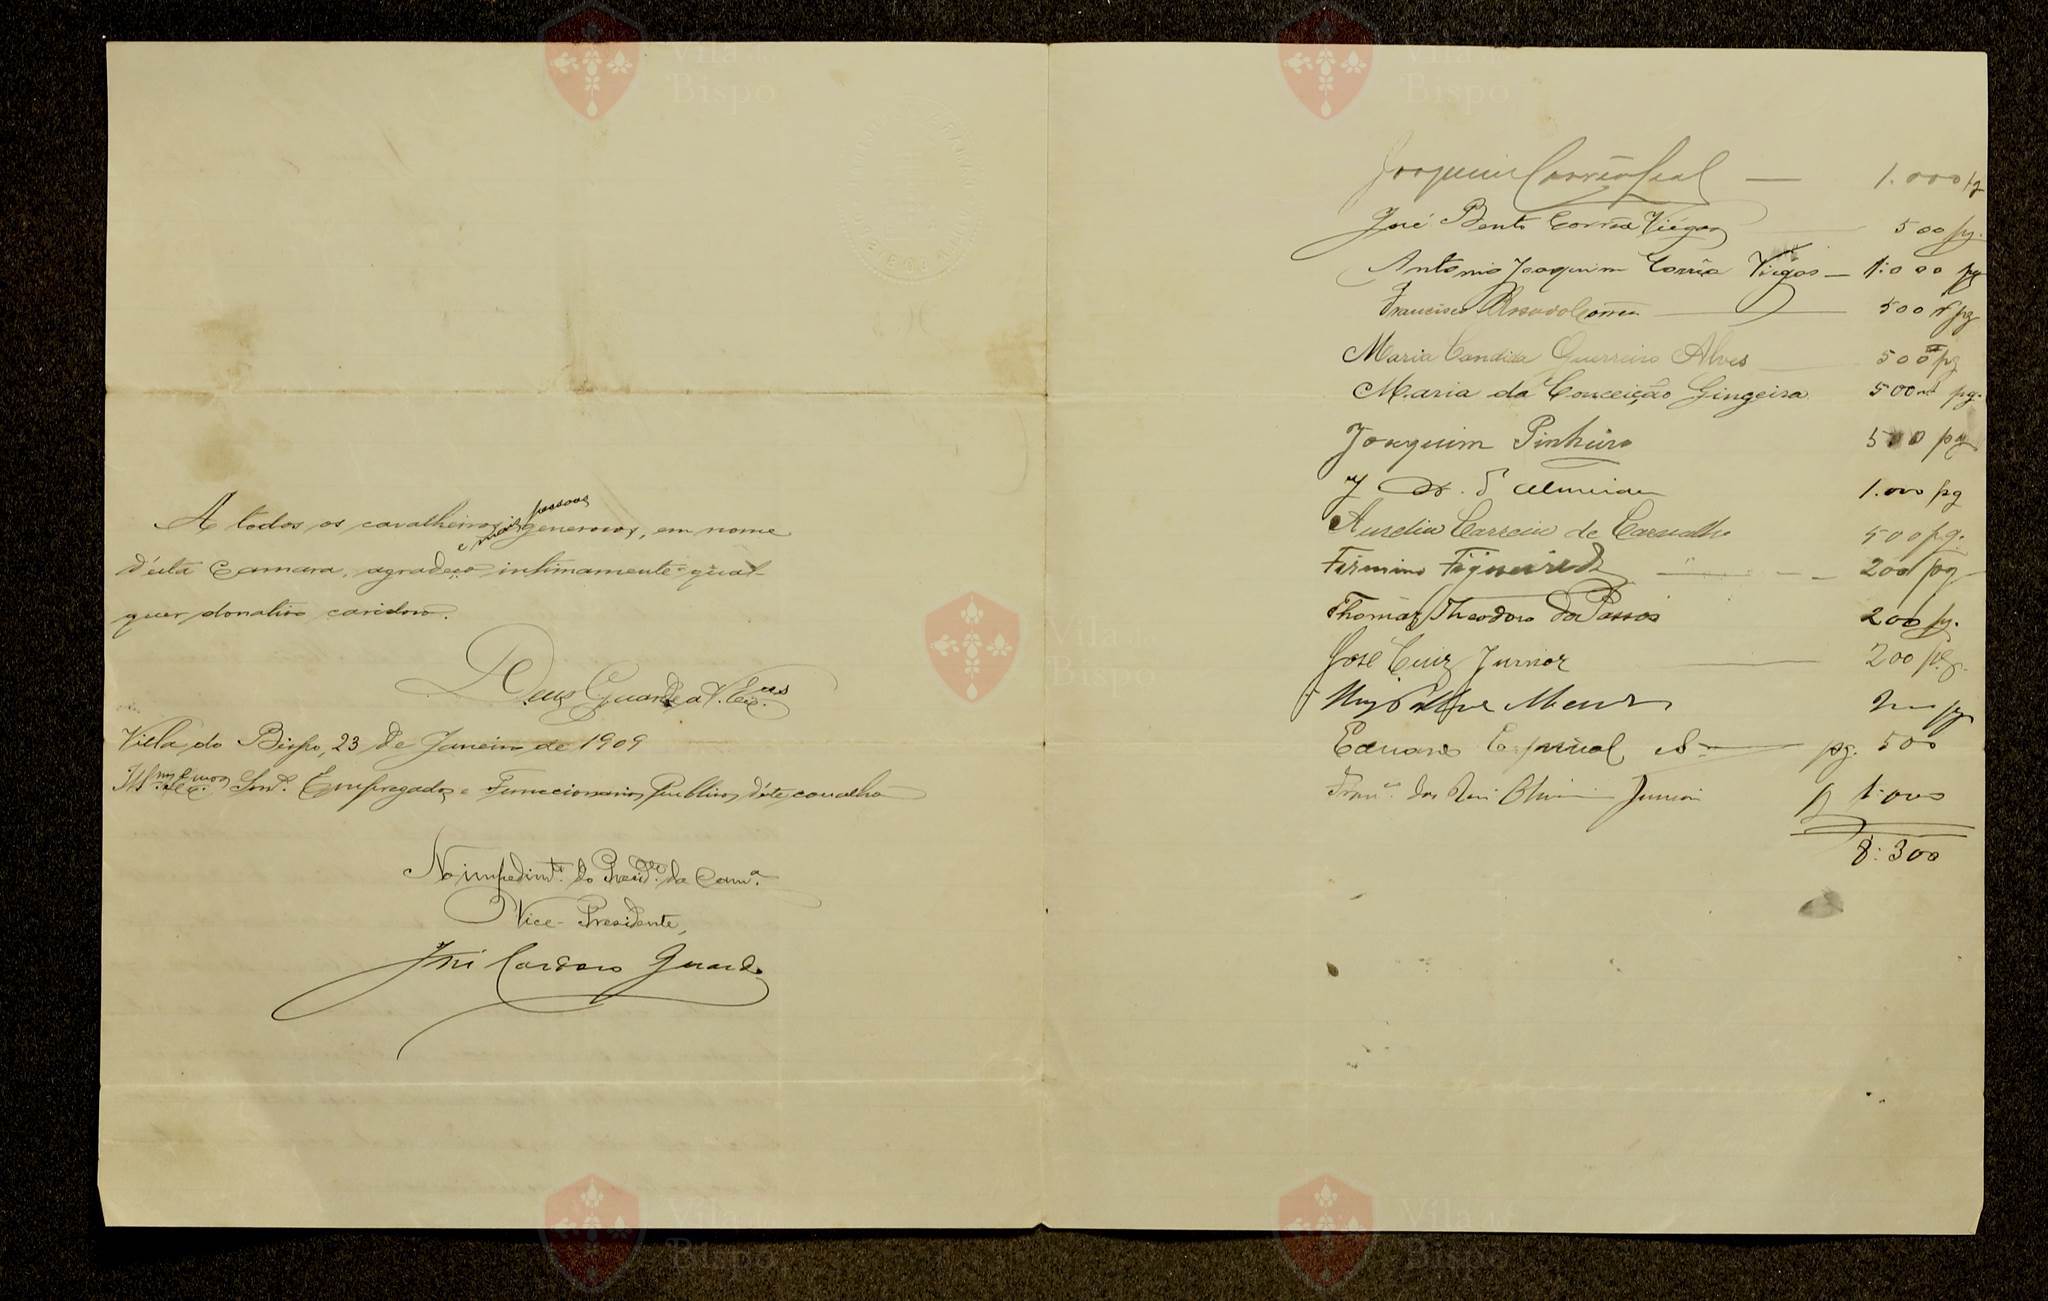 A todos os cavalheiros e mais pessoas generosas, em nome
d'esta Camara, agradeço intimamente qual-
quer donativo caridoso.
Deus Guarde a V. Ex.cias
Villa do Bispo, 23 de Janeiro de 1909
Ill.mos e Ex.mos Snrs. Empregados e Funccionarios Publicos d'este concelho
No impedimt.º do Presid.te da Cam.ª
Vice-Presidente,
José Cardoso
Joaquim Corrêa Leal — 1.000 pg
José Bento Corrêa Viégas 500 pg.
Antonio Joaquim Corrêa Viegas — 1:000 pg
Francisco Rosado Correa — 500 rs pg
Maria Candida Guerreiro Alves 500 pg
Maria da Conceição Gingeira 500 rs pg.
Joaquim Pinheiro 500 pg
Almeida 1.000 pg
Aurelia Correia de Carvalho 500 pg.
Firmino Figueiredo — 200 pg
Thomáz Theodoro da Passos 200 pg.
José Luiz Junior — 200 pg.
pg
Eduardo — pg. 500
Fran.co dos Reis Junior pg 1:000
8:300
Vila do Bispo
Vila do Bispo
Vila do Bispo
Vila do Bispo
Vila do Bispo